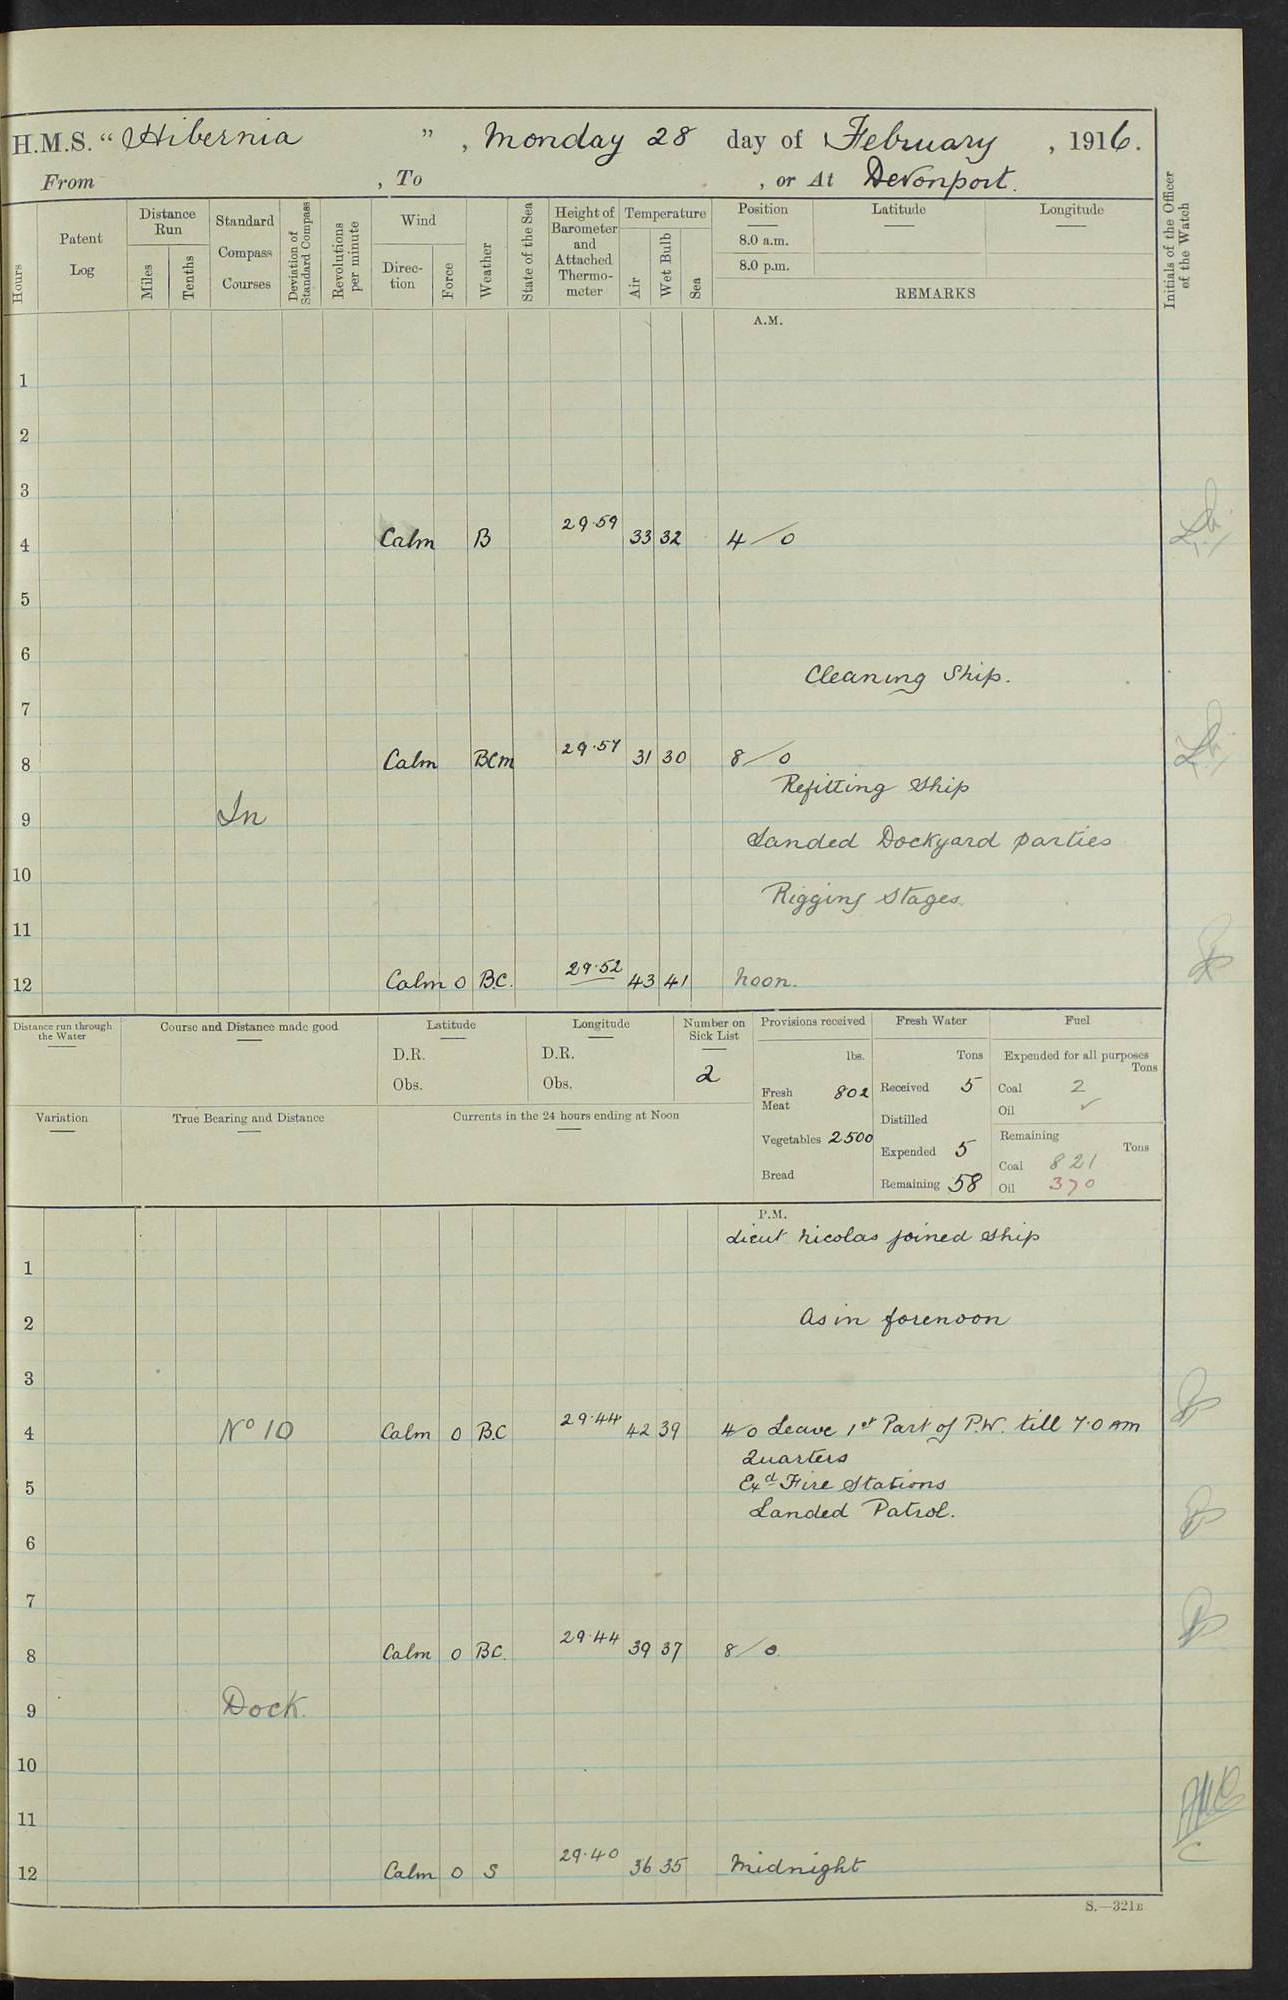 H.M.S. “Hibernia”, Monday 28 day of February, 1916.
From , To , or At Devonport.
Hours
Patent Log
Distance Run
Miles
Tenths
Standard Compass Courses
Deviation of Standard Compass
Revolutions per minute
Wind
Direc-tion
Force
Weather
State of the Sea
Height of Barometer and Attached Thermo-meter
Temperature
Air
Wet Bulb
Sea
Position
8.0 a.m.
8.0 p.m.
Latitude
Longitude
REMARKS
Initials of the Officer of the Watch
A.M.
1
2
3
4 Calm B 29.59 33 32 4/0
5
6
Cleaning Ship.
7
8 Calm BCm 29.57 31 30 8/0
Refitting Ship
9 In
Landed Dockyard parties
10
Rigging Stages
11
12 Calm 0 B.C. 29.52 43 41 Noon.
Distance run through the Water
Course and Distance made good
Latitude
D.R.
Obs.
Longitude
D.R.
Obs.
Number on Sick List
2
Provisions received
lbs.
Fresh Meat 802
Vegetables 2500
Bread
Fresh Water
Tons
Received 5
Distilled
Expended 5
Remaining 58
Fuel
Expended for all purposes
Tons
Coal 2
Oil ✓
Remaining
Tons
Coal 821
Oil 370
Variation
True Bearing and Distance
Currents in the 24 hours ending at Noon
P.M.
Lieut Nicolas joined ship
1
2 As in forenoon
3
4 No 10 Calm 0 B.C 29.44 42 39 4/0 Leave 1st Part of P.W. till 7.0 AM
Quarters
5 Exd Fire Stations
Landed Patrol.
6
7
8 Calm 0 BC. 29.44 39 37 8/0
9 Dock.
10
11
12 Calm 0 S 29.40 36 35 Midnight
S.—321E